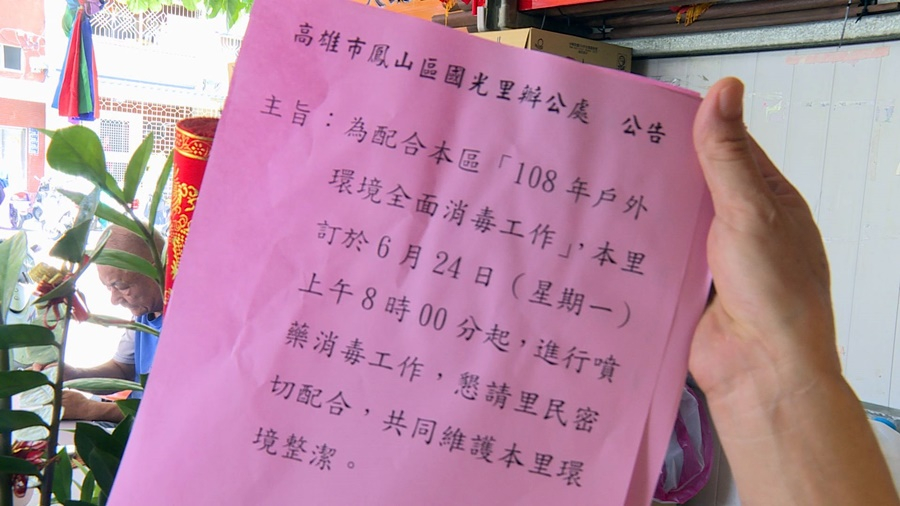 高雄市鳳山區國光里辦公處 公告
主旨：為配合本區「108年戶外
環境全面消毒工作」，本里
訂於6月24日（星期一）
上午8時00分起，進行噴
藥消毒工作，懇請里民密
切配合，共同維護本里環
境整潔。